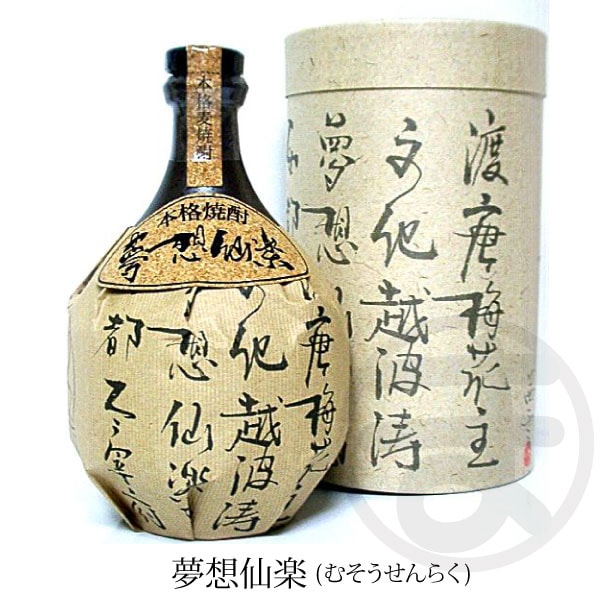 本格麦焼酎
本格焼酎
夢想仙楽
唐梅花
文化越波涛
夢想仙楽
都
渡唐梅花主
文化越波涛
夢想
都
夢想仙楽 (むそうせんらく)